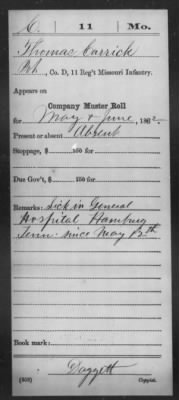 C. 11 Mo.
Thomas Carrick
Pvt., Co. D, 11 Reg't Missouri Infantry.
Appears on
Company Muster Roll
for May & June, 1862.
Present or absent Absent
Stoppage, $ 100 for
Due Gov't, $ 100 for
Remarks: Sick in General
Hospital Hamburg
Tenn. since May 13th
Book mark:
Daggett
(858) Copyist.